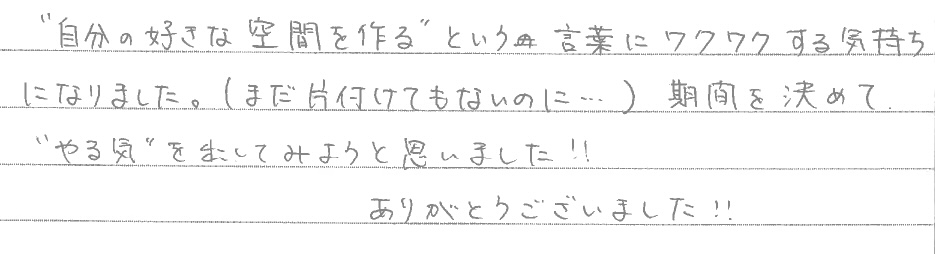 "自分の好きな空間を作る"という言葉にワクワクする気持ち
になりました。(まだ片付けてもないのに…) 期間を決めて
"やる気"を出してみようと思いました!!
ありがとうございました!!